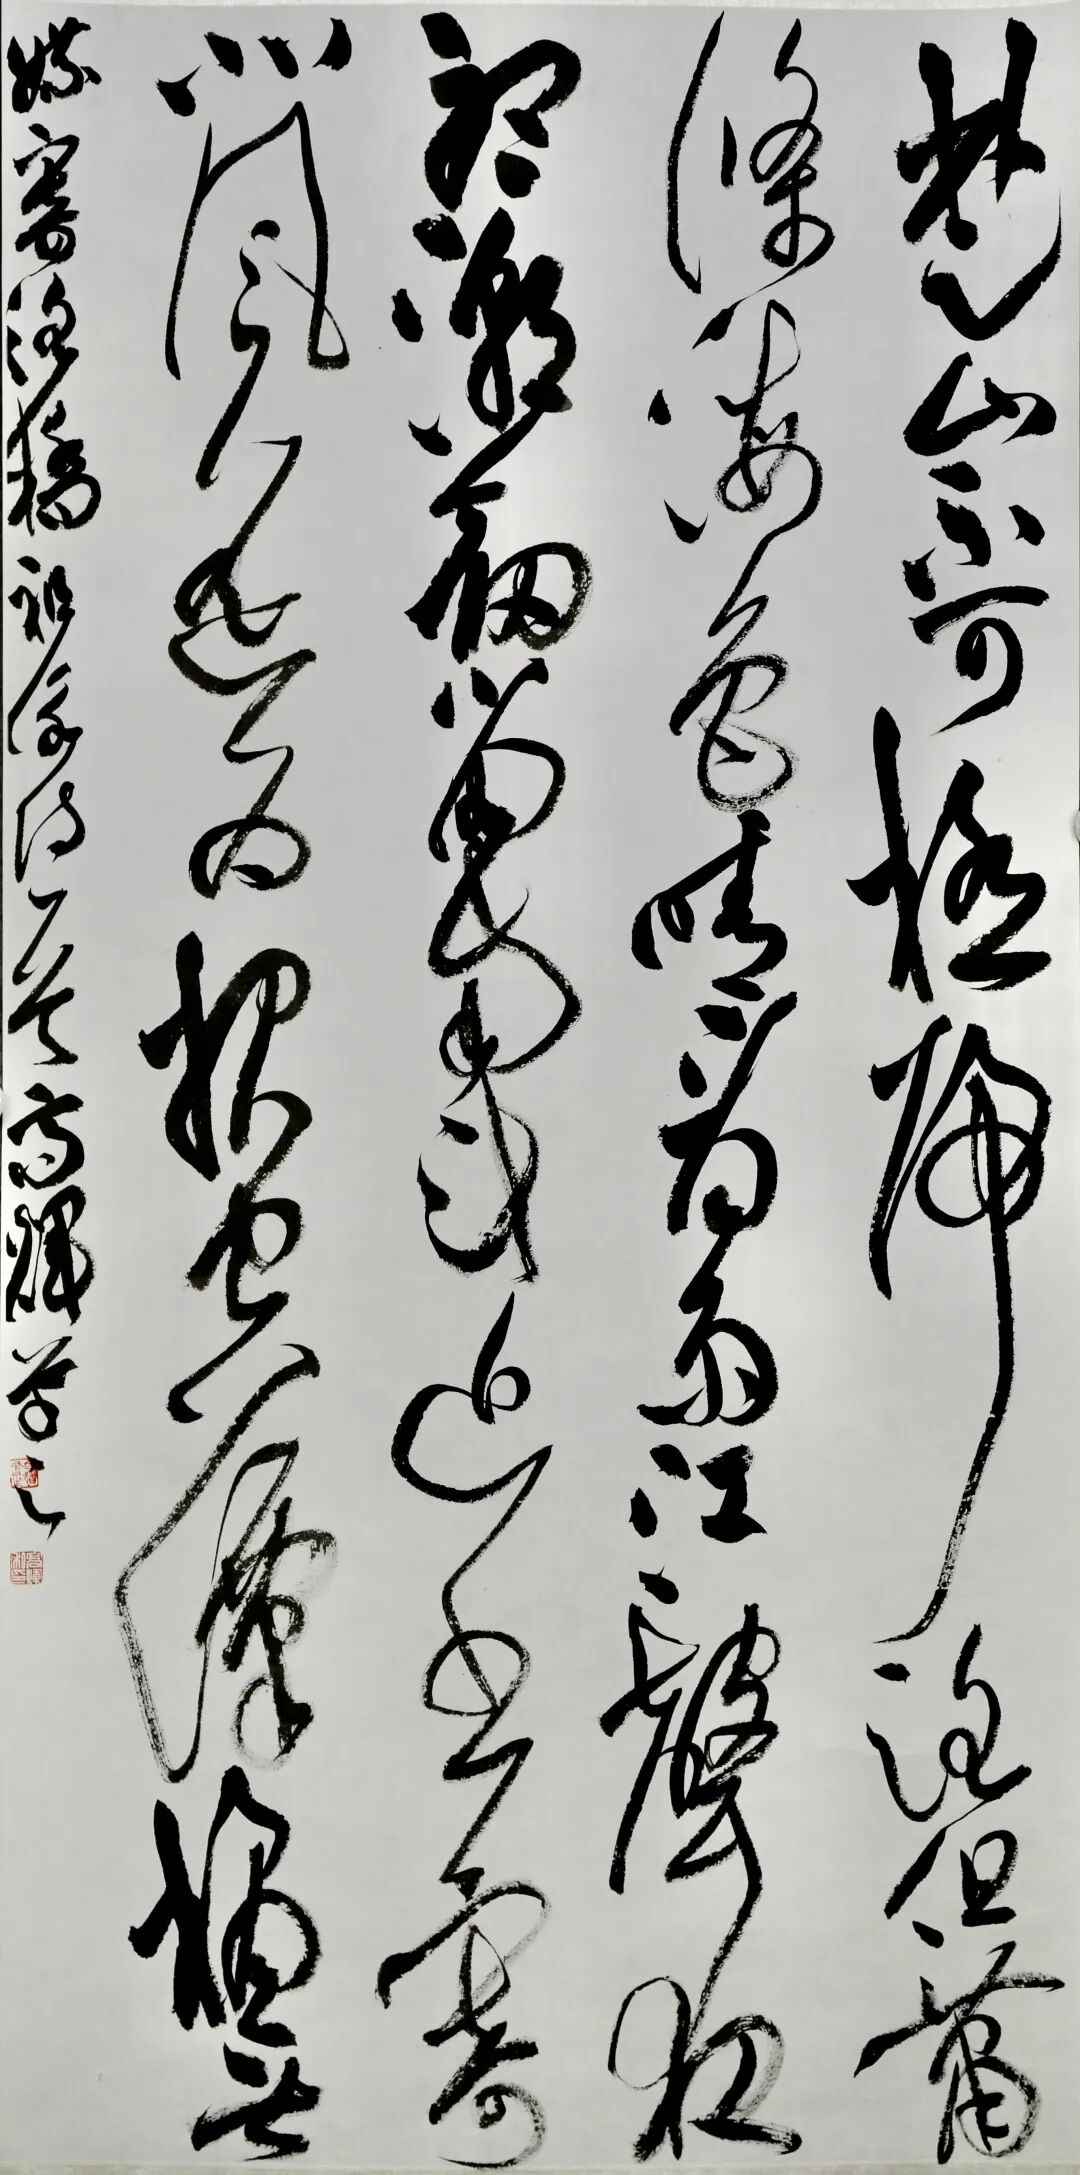 楚山不可極歸路但蕭
條海色晴看雨江聲夜
聽潮劍留南斗近書寄
北風遙為報空潭橘無
媒寄洛橋 祖詠詩一首 高輝